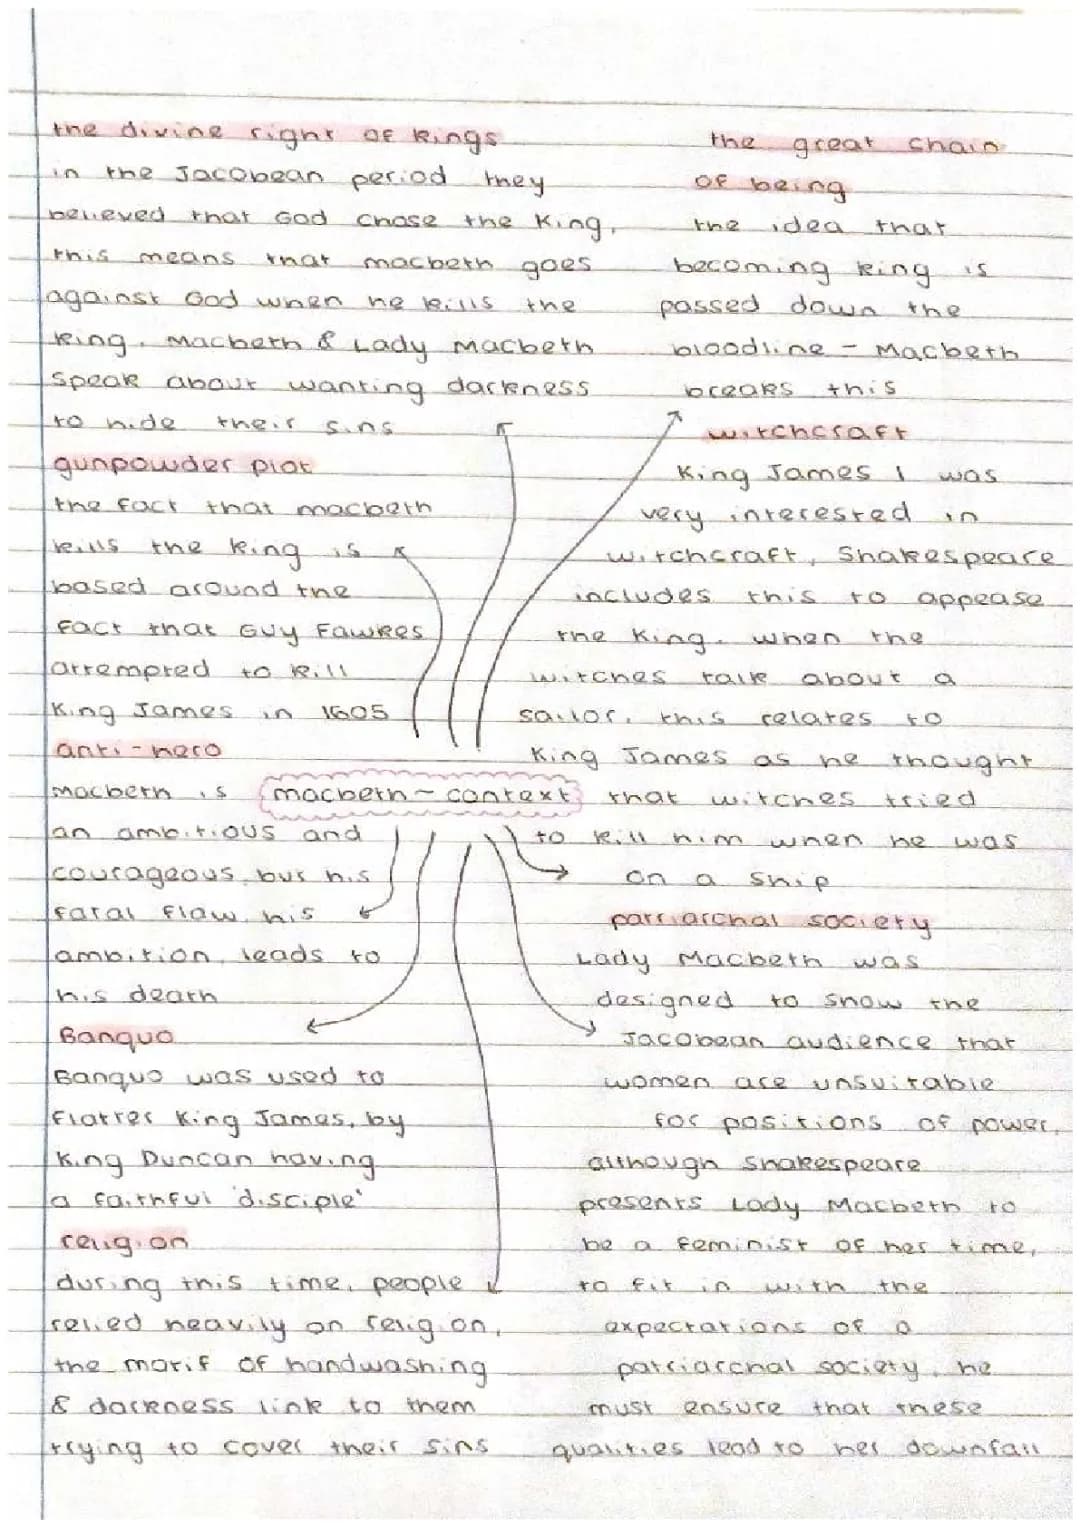 the divine right of kings
in the Jacobean period they
believed that God chose the King,
this means that macbeth goes
against God when he kills the
king. Macbeth & Lady Macbeth
speak about wanting darkness
to hide their sins
gunpowder plot
the fact that macbeth
kills the king is
based around the
fact that Guy Fawkes
attempted to kill
King James in 1605
anti-hero
macbeth is
an ambitious and
courageous, but his
fatal flaw, his
ambition, leads to
his death
Banquo
Banquo was used to
flatter King James, by
King Duncan having
a faithful 'disciple'
religion
during this time, people
relied heavily on religion,
the motif of handwashing
& darkness link to them
trying to cover their sins
macbeth ~ context
the great chain
of being
the idea that
becoming king is
passed down the
bloodline - Macbeth
breaks this
witchcraft
King James I was
very interested in
witchcraft, Shakespeare
includes this to appease
the King. when the
witches talk about a
sailor, this relates to
King James as he thought
that witches tried
to kill him when he was
on a ship
patriarchal society
Lady Macbeth was
designed to show the
Jacobean audience that
women are unsuitable
for positions of power,
although Shakespeare
presents Lady Macbeth to
be a feminist of her time,
to fit in with the
expectations of a
patriarchal society, he
must ensure that these
qualities lead to her downfall